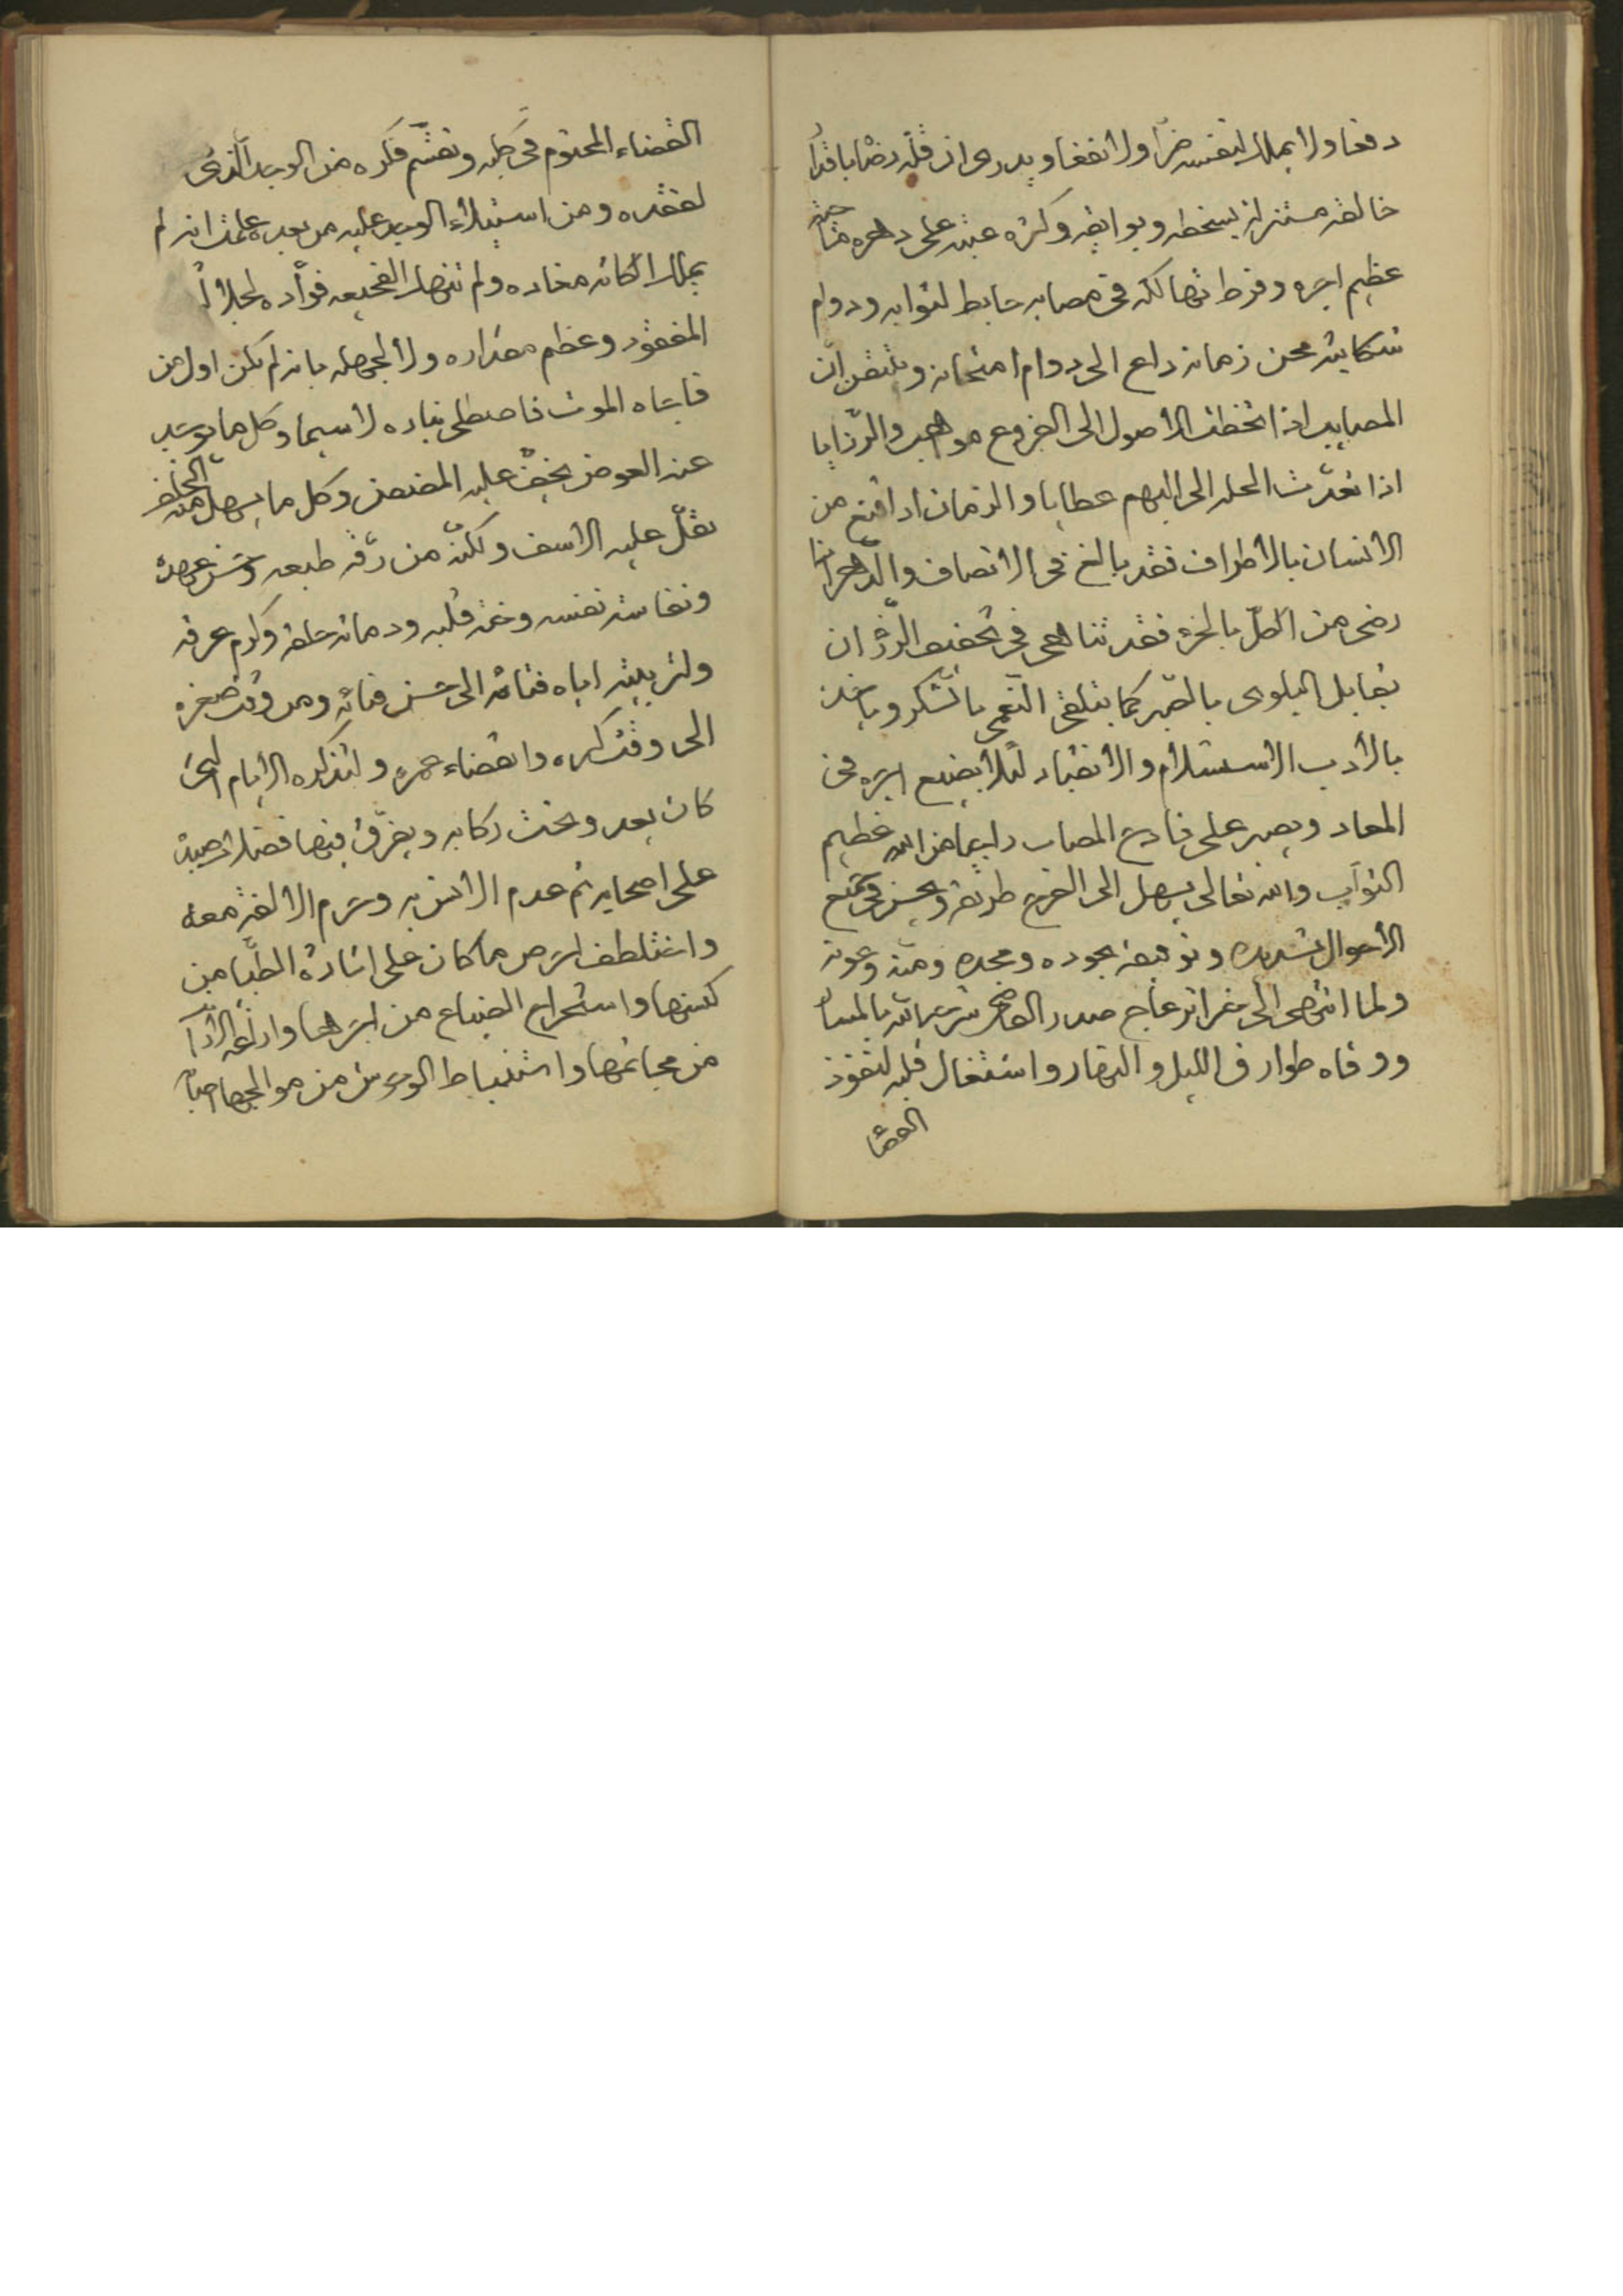 دفعا ولا يملك لنفسه ضرّا ولا نفعا ويدرى ان قلّة رضاه باقدار
خالقه مستنزلة لسخطه وبوايقه وكثرة عتبه على دهره
عظيم اجره وفرط تهالكه فى مصابه حابط لثوابه ودوام
شكايته محن زمانه داع الى دوام امتحانه ويتيقن انّ
المصايب اذا تخطت الاصول الى الفروع مواهب والرّزايا
اذا تعدّت الجلة الى البهم عطايا والزمان اذا قنع من
الانسان بالاطراف فقد بالغ فى الانصاف والدّهر اذا
رضى من الكلّ بالجزء فقد تناهى فى تخفيف الرزؤ ان
يقابل البلوى بالصّبر كما يتلقى النّعمى بالشّكر وياخذ
بالادب الاستسلام والانقياد لئلا يضيع اجره فى
المعاد ويصبر على فادح المصاب راجيا من الله عظيم
الثواب والله تعالى يسهل الى الفرج طريقه ويحسن فى جميع
الاحوال تسديده وتوفيقه بجوده ومجده ومنّه وعونه
ولما انتهى الىّ خبر انزعاج صدر القاضى شرح الله بالمسار
ووقاه طوارق الليل والنهار واشتغال قلبه لنفوذ
القضاء
القضاء المحتوم فى كلبه وتقسّم فكره من الوجد الّذى
لفقده ومن استيلاء الوجد عليه من بعده علمت انه لم
يملك الكآبة مقاده ولم تنهك الفجيعه فؤاده لجلالة
المفقود وعظم مقداره ولا لجهله بانه لم يكن اول من
فاجاه الموت فاصطلى بناره لا سيما وكل ما يوجد
عنه العوض يخفّ عليه المضض وكل ما يسهل منه الخلف
يقلّ عليه الاسف ولكنّه من رقّة طبعه وحسن عهده
ونفاسة نفسه ورقة قلبه ودماثة خلقه وكرم عرقه
ولتربيته اياه فتائه الى حسن فنائه ومن وقت صغره
الى وقت كبره وانقضاء عمره ولتذكره الايام التى
كان يعدو تحت ركابه ويفرّق فيها فضلات صيده
على اصحابه ثم عدم الانس به وحرم الالفة معه
واختلطف الحرص ما كان على اثارة الظّبا من
كنسها واستخراج الضباع من اجحرها وازعاج الارانب
من مجاثمها واستنباط الوحوش من موالجها